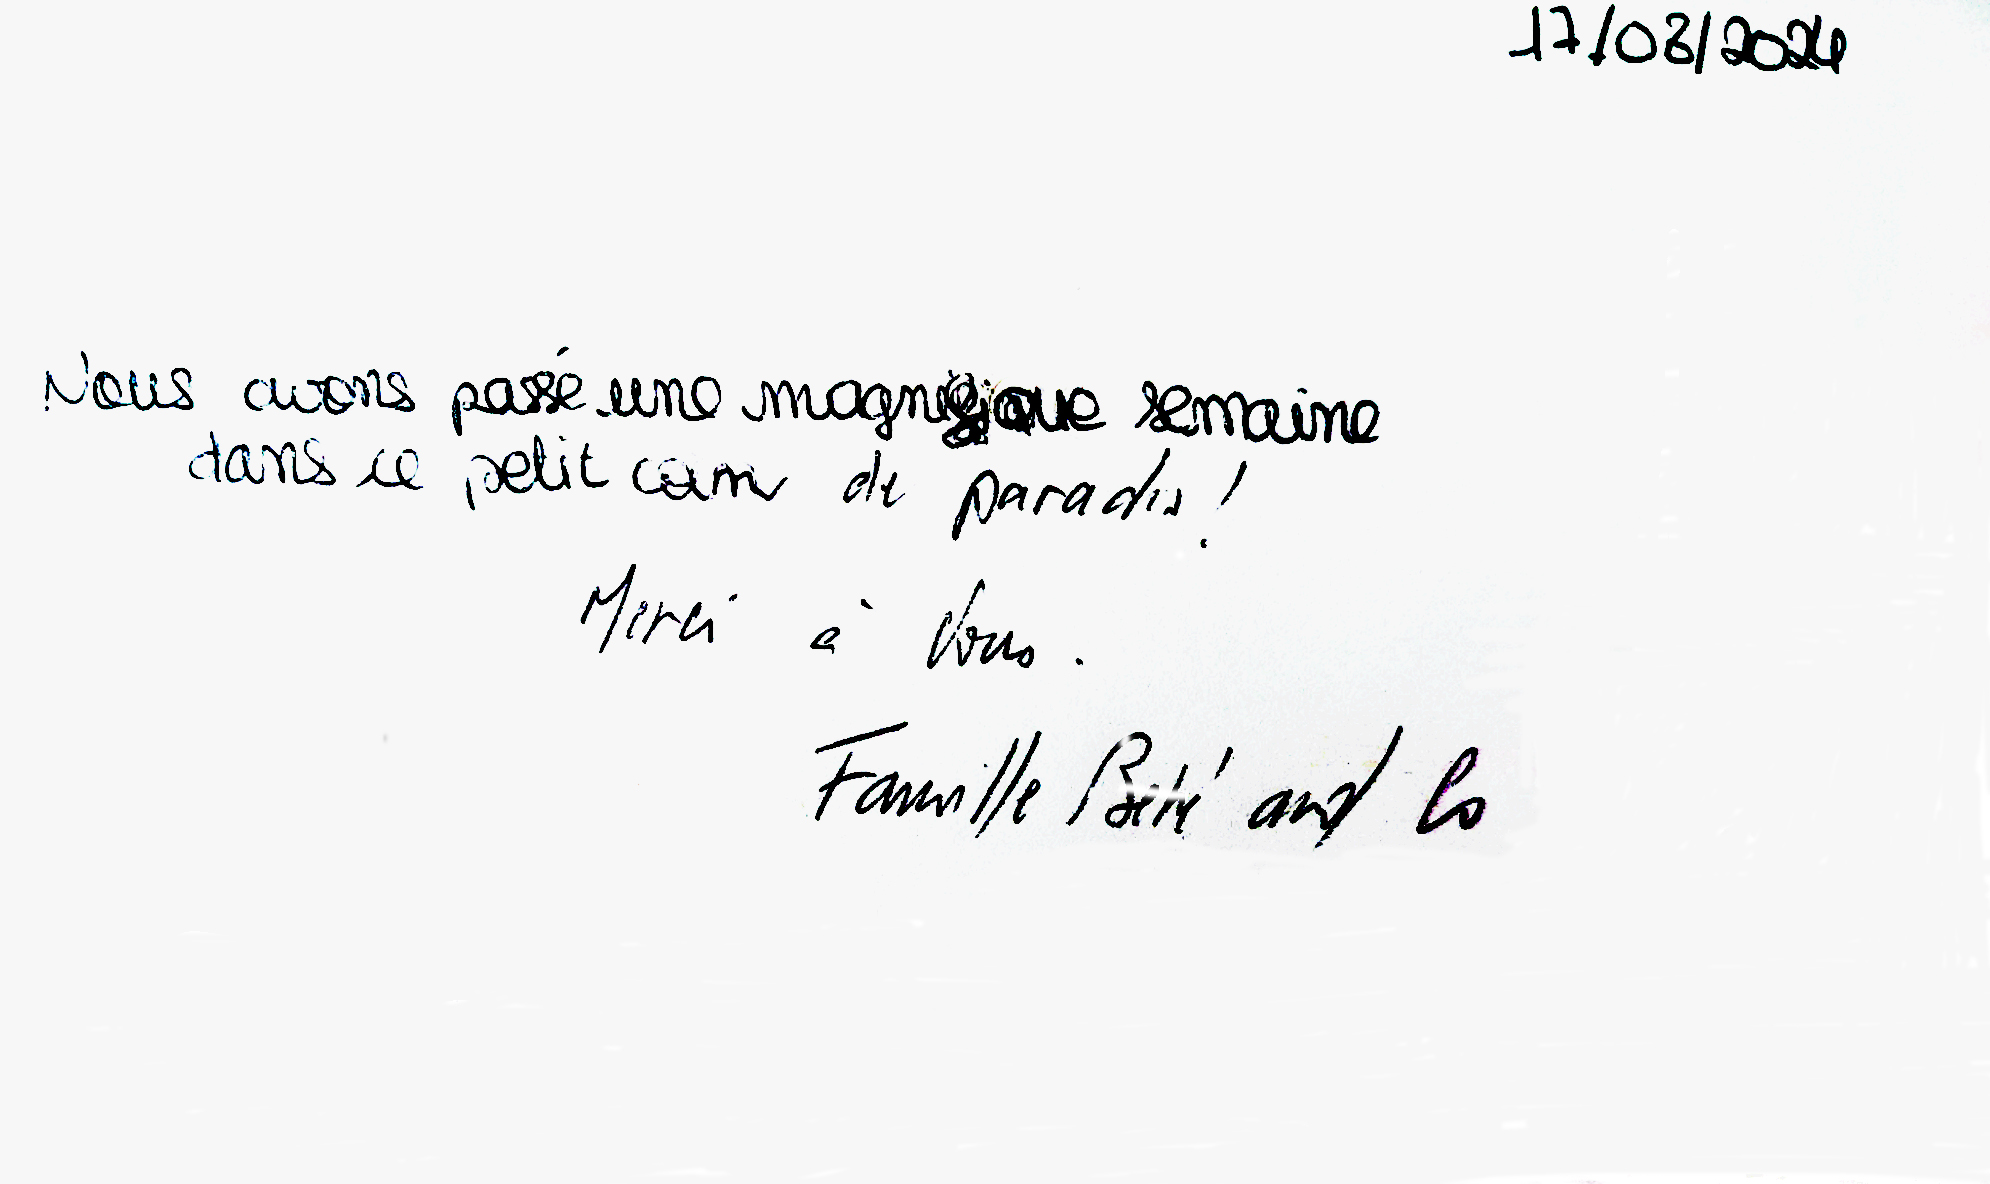 17/03/2024
Nous avons passé une magnifique semaine
dans ce petit coin de paradis !
Merci à vous.
Famille Bété and Co